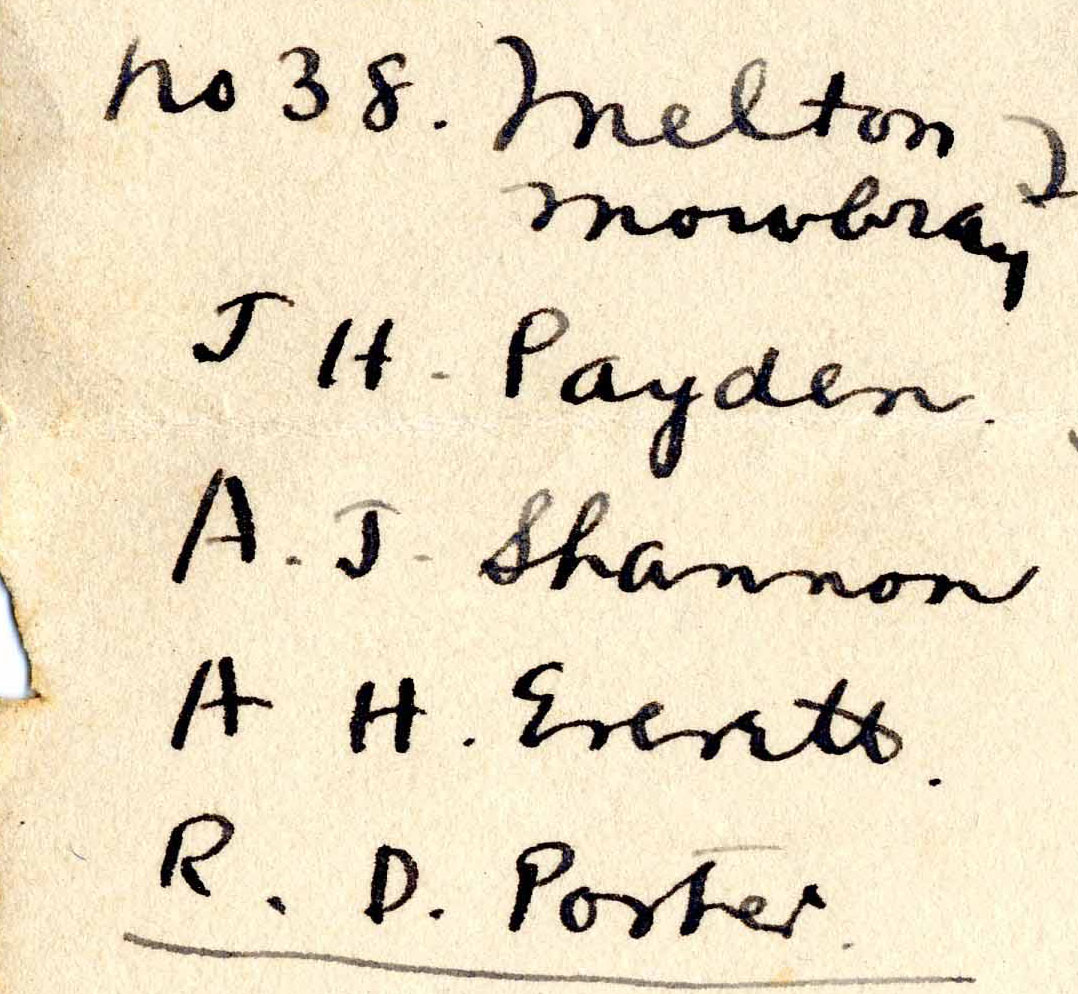 No 38. Melton
Mowbray
J H. Payden.
A. J. Shannon
A H. Everett.
R. D. Porter.